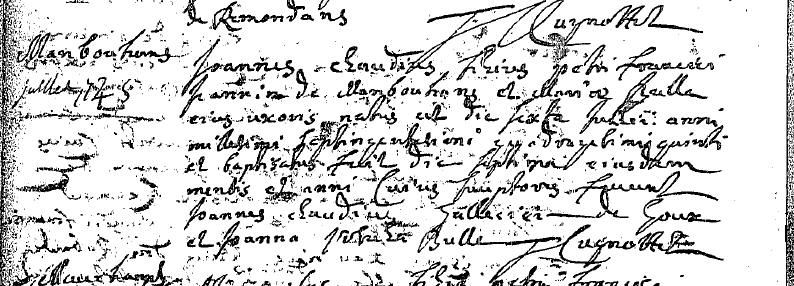 de Remondans
J Cugnottet
Manbouhans
juillet 1745
Joannes claudius filius petri francisci
Jannin de Manbouhans et Mariæ Bulle
eius uxoris natus est die sexta julii anni
millesimi septingentesimi quadragesimi quinti
et baptisatus fuit die septima eiusdem
mensis et anni cuius susceptores fuerunt
Joannes claudius de Goux
et Joanna Bulle J Cugnottet
filius petri francisci